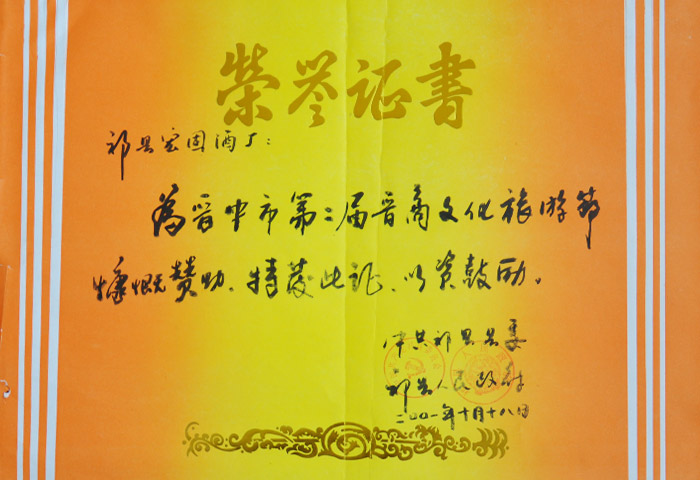 荣誉证书
祁县宏固酒厂：
为晋中市第二届晋商文化旅游节
慷慨赞助、特发此证、以资鼓励。
中共祁县县委
祁县人民政府
二00一年十月十八日